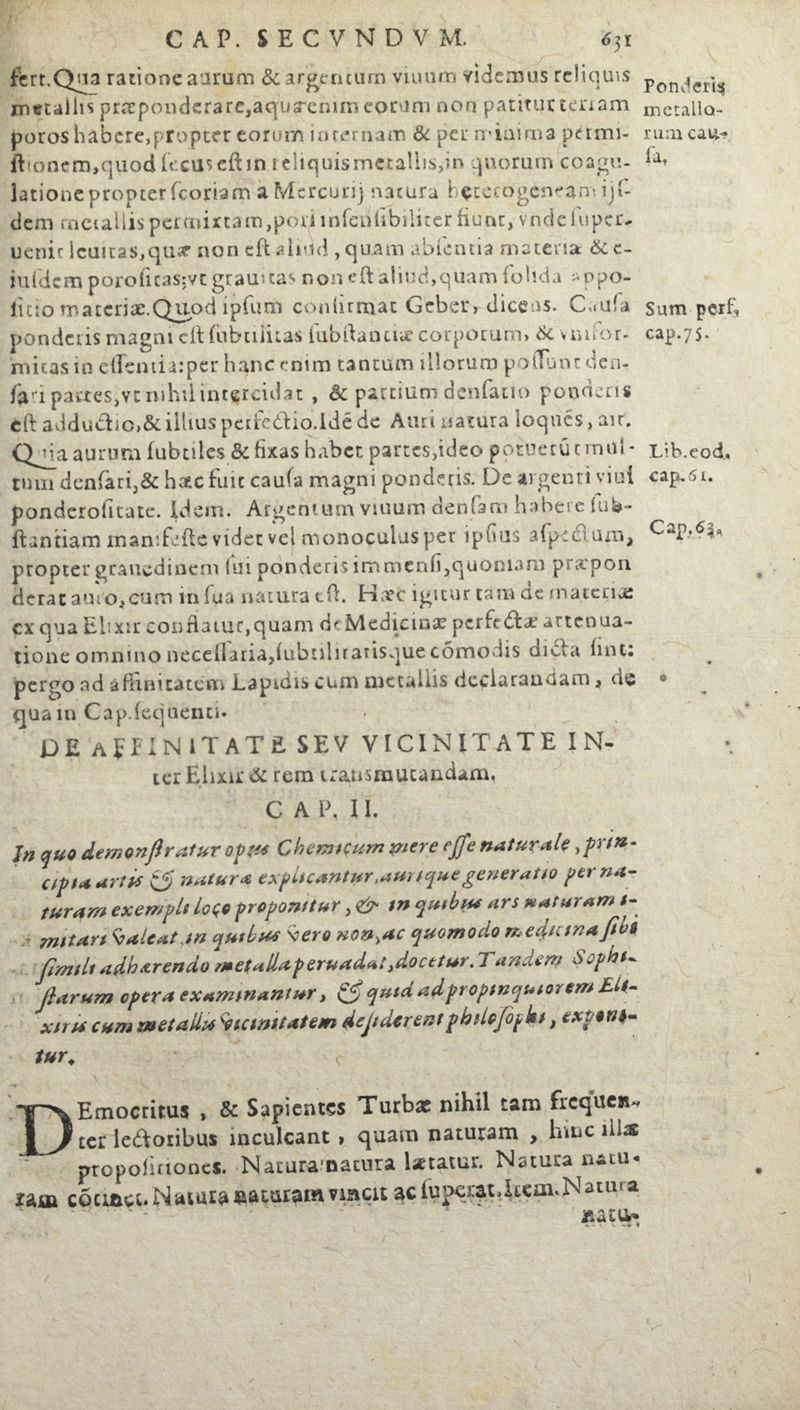 CAP. SECVNDVM. 631
fert. Qua ratione aurum & argentum viuum videmus reliquis
metallis præponderare, aqua enim eorum non patitur terram
poros habere, propter eorum internam & per minima permi-
ſtionem, quod ſecus eſt in reliquis metallis, in quorum coagu-
latione propter ſcoriam a Mercurij natura heterogeneam ijſ-
dem metallis permixtam, pori inſenſibiliter fiunt, vnde ſuper-
uenit leuitas, quæ non eſt aliud, quam abſentia materiæ & e-
iuſdem poroſitas; vt grauitas non eſt aliud, quam ſolida appo-
ſitio materiæ. Quod ipſum confirmat Geber, dicens. Cauſa
ponderis magni eſt ſubtilitas ſubſtantiæ corporum, & vnifor-
mitas in eſſentia: per hanc enim tantum illorum poſſunt den-
ſari partes, vt nihil intercidat, & partium denſatio ponderis
eſt adductio, & illius perfectio. Idē de Auri natura loquēs, air.
Quia aurum ſubtiles & fixas habet partes, ideo potuerūt mul-
tum denſari, & hæc fuit cauſa magni ponderis. De argenti viui
ponderoſitate. Idem. Argentum viuum denſam habere ſub-
ſtantiam manifeſte videt vel monoculus per ipſius aſpectum,
propter grauedinem ſui ponderis immenſi, quoniam præpon
derat auro, cum in ſua natura eſt. Hæc igitur tam de materiæ
ex qua Elixir conflatur, quam de Medicinæ perfectæ attenua-
tione omnino neceſſaria, ſubtilitatisque cōmodis dicta ſint:
pergo ad affinitatem Lapidis cum metallis declarandam, de
qua in Cap. ſequenti.
Ponderis
metallo-
rum cau-
ſa.
Sum. perf.
cap. 75.
Lib. eod.
cap. 61.
Cap. 63.
DE AFFINITATE SEV VICINITATE IN-
ter Elixir & rem transmutandam.
CAP. II.
In quo demonſtratur opus Chemicum mere eſſe naturale, prin-
cipia artis & naturæ explicantur, aurique generatio per na-
turam exempli loco proponitur, & in quibus ars naturam i-
mitari valeat, in quibus vero non, ac quomodo medicina ſibi
ſimili adhærendo metalla peruadat, docetur. Tandem Sophi-
ſtarum opera examinantur, & quid ad propinquiorem Eli-
xiris cum metallis vicinitatem deſiderent philoſophi, exponi-
tur.
DEmocritus, & Sapientes Turbæ nihil tam frequen-
ter lectoribus inculcant, quam naturam, hinc illæ
propoſitiones. Natura natura lætatur. Natura natu-
ram cōtinet. Natura naturam vincit ac ſuperat. Item. Natura
natu-